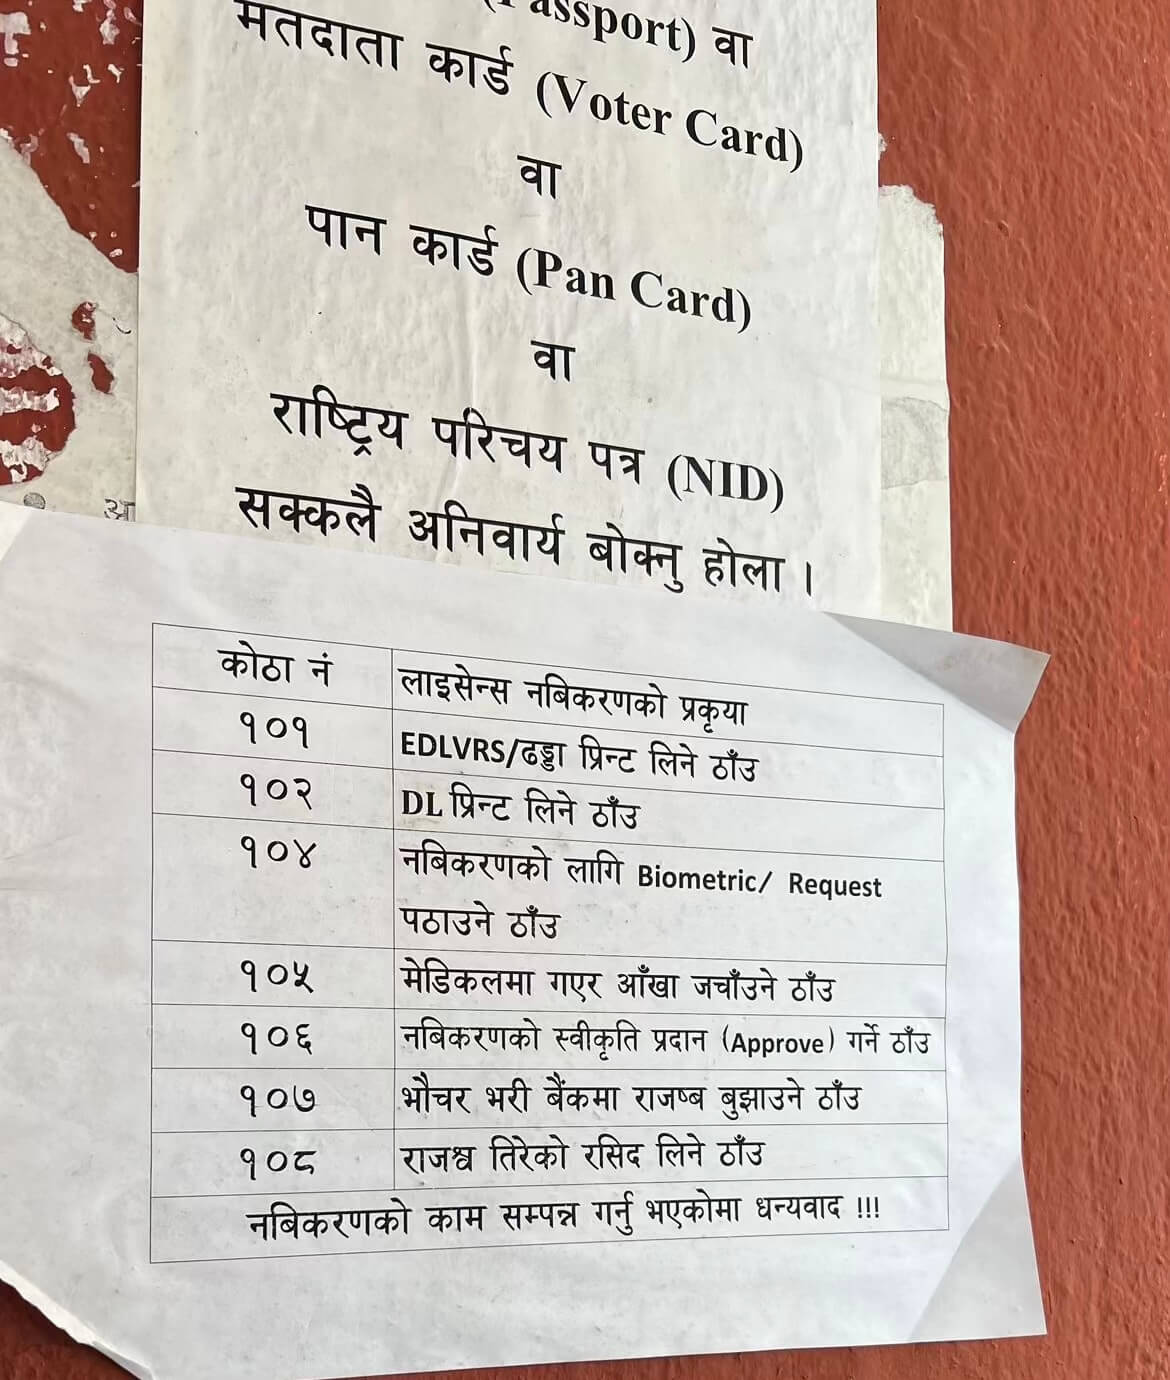 (Passport) वा
मतदाता कार्ड (Voter Card)
वा
पान कार्ड (Pan Card)
वा
राष्ट्रिय परिचय पत्र (NID)
सक्कलै अनिवार्य बोक्नु होला ।
कोठा नं लाइसेन्स नबिकरणको प्रकृया
१०१ EDLVRS/ढड्डा प्रिन्ट लिने ठाँउ
१०२ DL प्रिन्ट लिने ठाँउ
१०४ नबिकरणको लागि Biometric/ Request
पठाउने ठाँउ
१०५ मेडिकलमा गएर आँखा जचाँउने ठाँउ
१०६ नबिकरणको स्वीकृति प्रदान (Approve) गर्ने ठाँउ
१०७ भौचर भरी बैंकमा राजष्ब बुझाउने ठाँउ
१०८ राजश्व तिरेको रसिद लिने ठाँउ
नबिकरणको काम सम्पन्न गर्नु भएकोमा धन्यवाद !!!